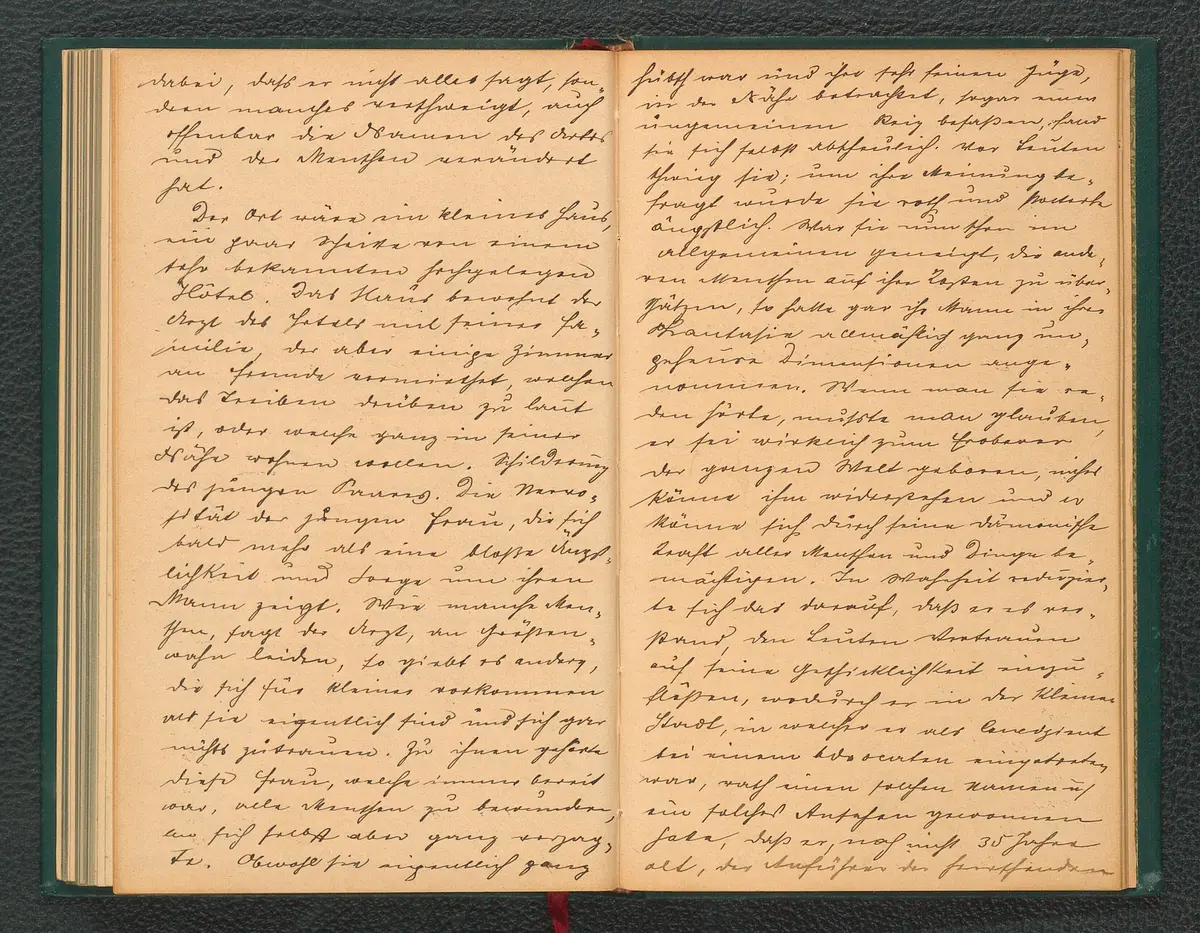 dabei, dass er nicht alles sagt, son-
dern manches verschweigt, auch
offenbar die Namen des Ortes
und der Menschen verändert
hat.
Der Ort wäre ein kleines Haus,
ein paar Schritte von einem
sehr bekannten hochgelegen
Hôtel. Das Haus bewohnt der
Arzt des Hotels mit seiner Fa-
milie, der aber einige Zimmer
an Fremde vermiethet, welchen
das Treiben drüben zu laut
ist, oder welche ganz in seiner
Nähe wohnen wollen. Schilderung
des jungen Paares. Die Nervo-
sität der jungen Frau, die sich
bald mehr als eine bloße Ängst-
lichkeit und Sorge um ihren
Mann zeigt. Wie manche Men-
schen, sagt der Arzt, an Größen-
wahn leiden, so giebt es andere,
die sich für kleiner vorkommen
als sie eigentlich sind und sich gar
nichts zutrauen. Zu ihnen gehörte
diese Frau, welche immer bereit
war, alle Menschen zu bewundern,
an sich selbst aber ganz verzag-
te. Obwohl sie eigentlich ganz
hübsch war und ihre sehr feinen Züge,
in der Nähe betrachtet, sogar einen
ungemeinen Reiz besaßen, fand
sie sich selbst abscheulich. Vor Leuten
schwieg sie; um ihre Meinung be-
fragt wurde sie roth und stotterte
ängstlich. War sie nun schon im
allgemeinen geneigt, die ande-
ren Menschen auf ihre Kosten zu über-
schätzen, so hatte gar ihr Mann in ihrer
Phantasie allmählich ganz un-
geheure Dimensionen ange-
nommen. Wenn man sie re-
den hörte, musste man glauben,
er sei wirklich zum Eroberer
der ganzen Welt geboren, nichts
könne ihm widerstehen und er
könne sich durch seine dämonische
Kraft aller Menschen und Dinge be-
mächtigen. In Wahrheit reduzier-
te sich das darauf, daß er es ver-
stand, den Leuten Vertrauen
auf seine Geschicklichkeit einzu-
flößen, wodurch er in der kleinen
Stadt, in welcher er als Concipient
bei einem Advocaten eingetreten
war, rasch einen solchen Namen u.
ein solches Ansehen gewonnen
hatte, daß er, noch nicht 35 Jahre
alt, der Anführer der herrschenden